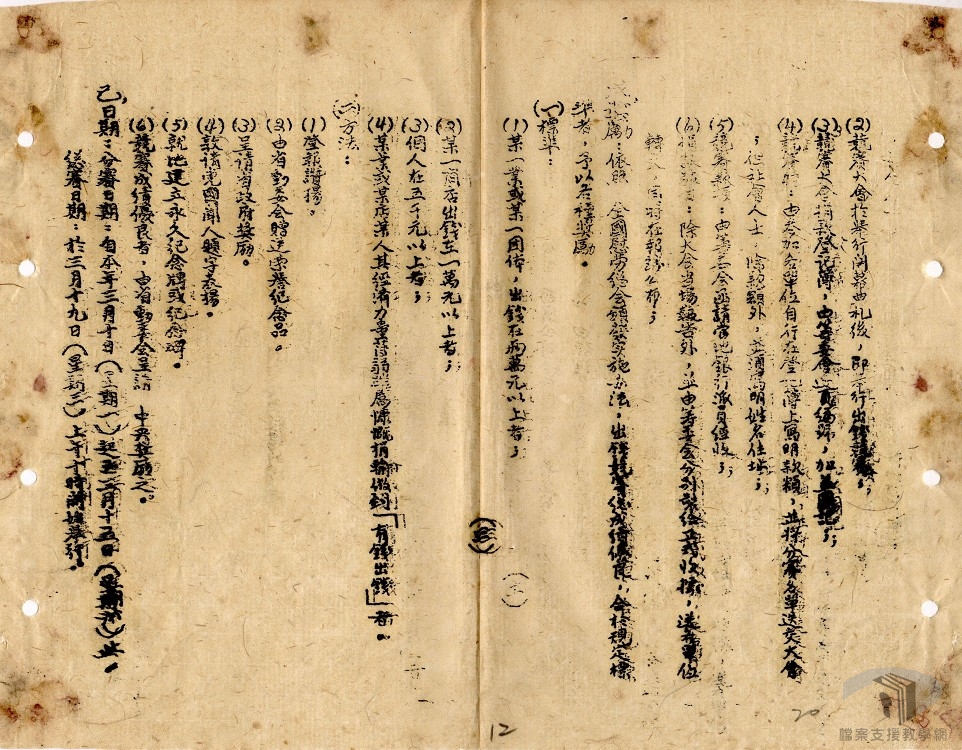 (2)競賽大會於舉行開幕典禮後，即舉行出錢競賽；
(3)競賽大會捐款登記簿，由籌委會逐頁編號，加蓋
(4)競賽時：由參加各單位自行在登記簿上寫明款額，並採分賽名單送交大會
，但社會人士，除款額外，並須寫明姓名住址；
(5)競賽款項：由籌委會函請當地銀行派員經收；
(6)捐款報告：除大會當場報告外，並由籌委會分別發給正式收據，送各單位
轉交，同時在報端公布；
獎勵：依照 全國慰勞總會頒發實施办法，出錢競賽總成績優良，合於規定標
準者，予以各種獎勵。
(一)標準：
(1)某一業或某一團体，出錢在兩萬元以上者；
(2)某一商店出錢在一萬元以上者；
(3)個人在五千元以上者；
(4)某業或某店某人其經濟力量薄弱能慷慨捐輸做到「有錢出錢」者。
(二)方法：
(1)登報讚揚。
(2)由省動委會贈送榮譽紀念品。
(3)呈請省政府獎励。
(4)敦請黨國聞人題字表揚。
(5)就地建立永久紀念牌或紀念碑。
(6)競賽成績優良者，由省動委会呈請 中央獎励之。
己、日期：分賽日期：自本年三月十日（星期一）起至三月十五日（星期六）止。
總賽日期：於三月十九日（星期三）上午十時開始舉行。
12
20
檔案支援教學網